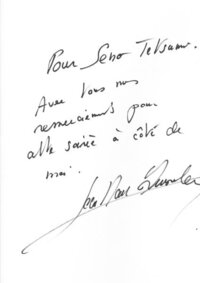 Pour Seno Tetsuano.
Avec tous nos
remerciements pour
cette soirée à côté de
moi.
Jean Marc